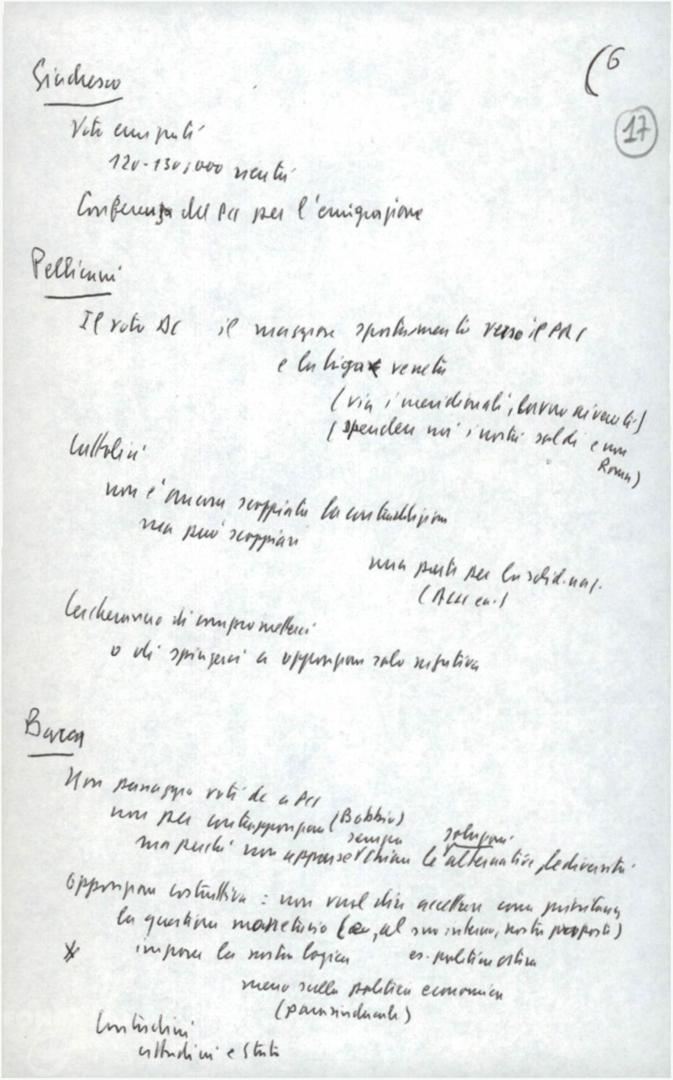 (6
17
Giadresco
Voto emigrati
120-130,000 rientri
Conferenza del PCI per l'emigrazione
Pellicani
Il voto DC il maggiore spostamento verso il PRI
e la liga veneta
(via i meridionali, lavoro ai veneti)
(spendere noi i nostri soldi e non
Roma)
Cattolici
non è ancora scoppiata la contraddizione
ma può scoppiare
una parte per la solid. naz.
(Acli ecc.)
Cercheranno di comprometterci
o di spingerci a opposizione solo negativa
Barca
Non passaggio voti dc a PCI
non per contrapposizione (Bobbio)
sempre soluzioni
ma perché non apparse chiare le alternative, le diversità
Opposizione costruttiva: non vuol dire accettare come
la questione monetaria (e, al suo interno, nostre proposte)
imporre la nostra logica es. politica estera
meno sulla politica economica
(parasindacale)
Contadini
cittadini e Stato